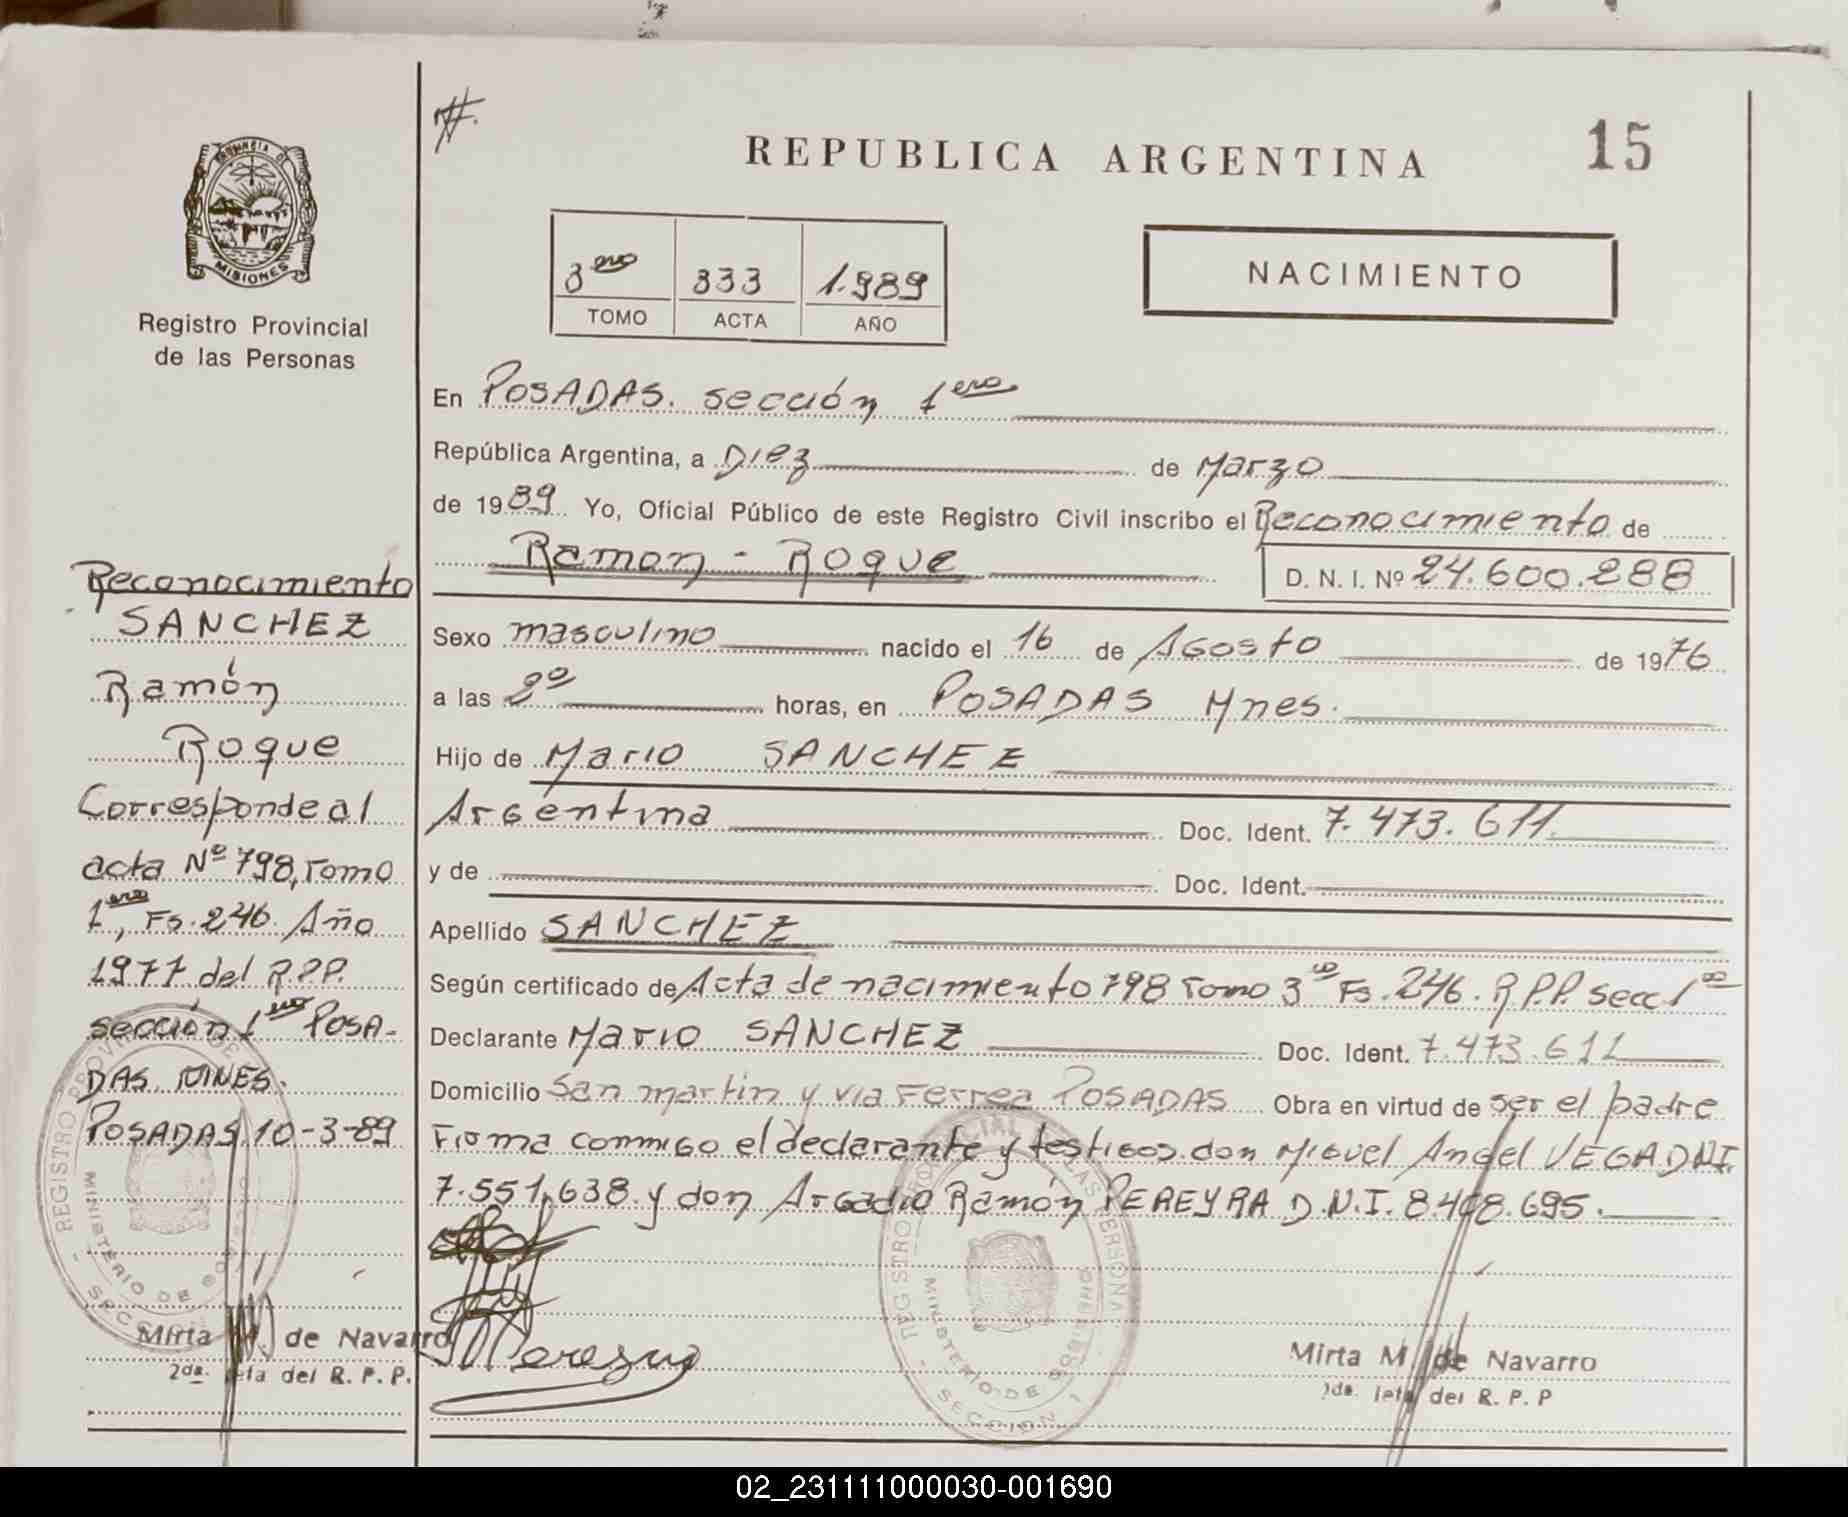 #.
REPUBLICA ARGENTINA
15
PROVINCIA DE
MISIONES
Registro Provincial
de las Personas
3ero 333 1.989
TOMO ACTA AÑO
NACIMIENTO
En POSADAS. sección 1ero
República Argentina, a Diez de Marzo
de 1989 Yo, Oficial Público de este Registro Civil inscribo el Reconocimiento de
Ramon - Roque D. N. I. Nº 24.600.288
Sexo masculino nacido el 16 de Agosto de 1976
a las 2º horas, en POSADAS Mnes.
Hijo de Mario SANCHEZ
Argentina Doc. Ident. 7.473.611.
y de Doc. Ident.
Apellido SANCHEZ
Según certificado de Acta de nacimiento 798 Tomo 3 Fs. 246. R.P.P. secc. 1
Declarante Mario SANCHEZ Doc. Ident. 7.473.611
Domicilio San martin y via Ferrea POSADAS Obra en virtud de ser el padre
Firma conmigo el declarante y testigos. don Miguel Angel VEGA DNI.
7.551.638. y don Arcadio Ramón PEREYRA D.N.I. 8.408.695.
Reconocimiento
SANCHEZ
Ramón
Roque
Corresponde al
acta Nº 798, Tomo
1ero, Fs. 246. Año
1977 del R.P.P.
sección 1ero POSA-
DAS MNES.
POSADAS 10-3-89
Mirta M. de Navarro
2da. Jefa del R. P. P.
Mirta M. de Navarro
2da. Jefa del R. P. P
02_231111000030-001690